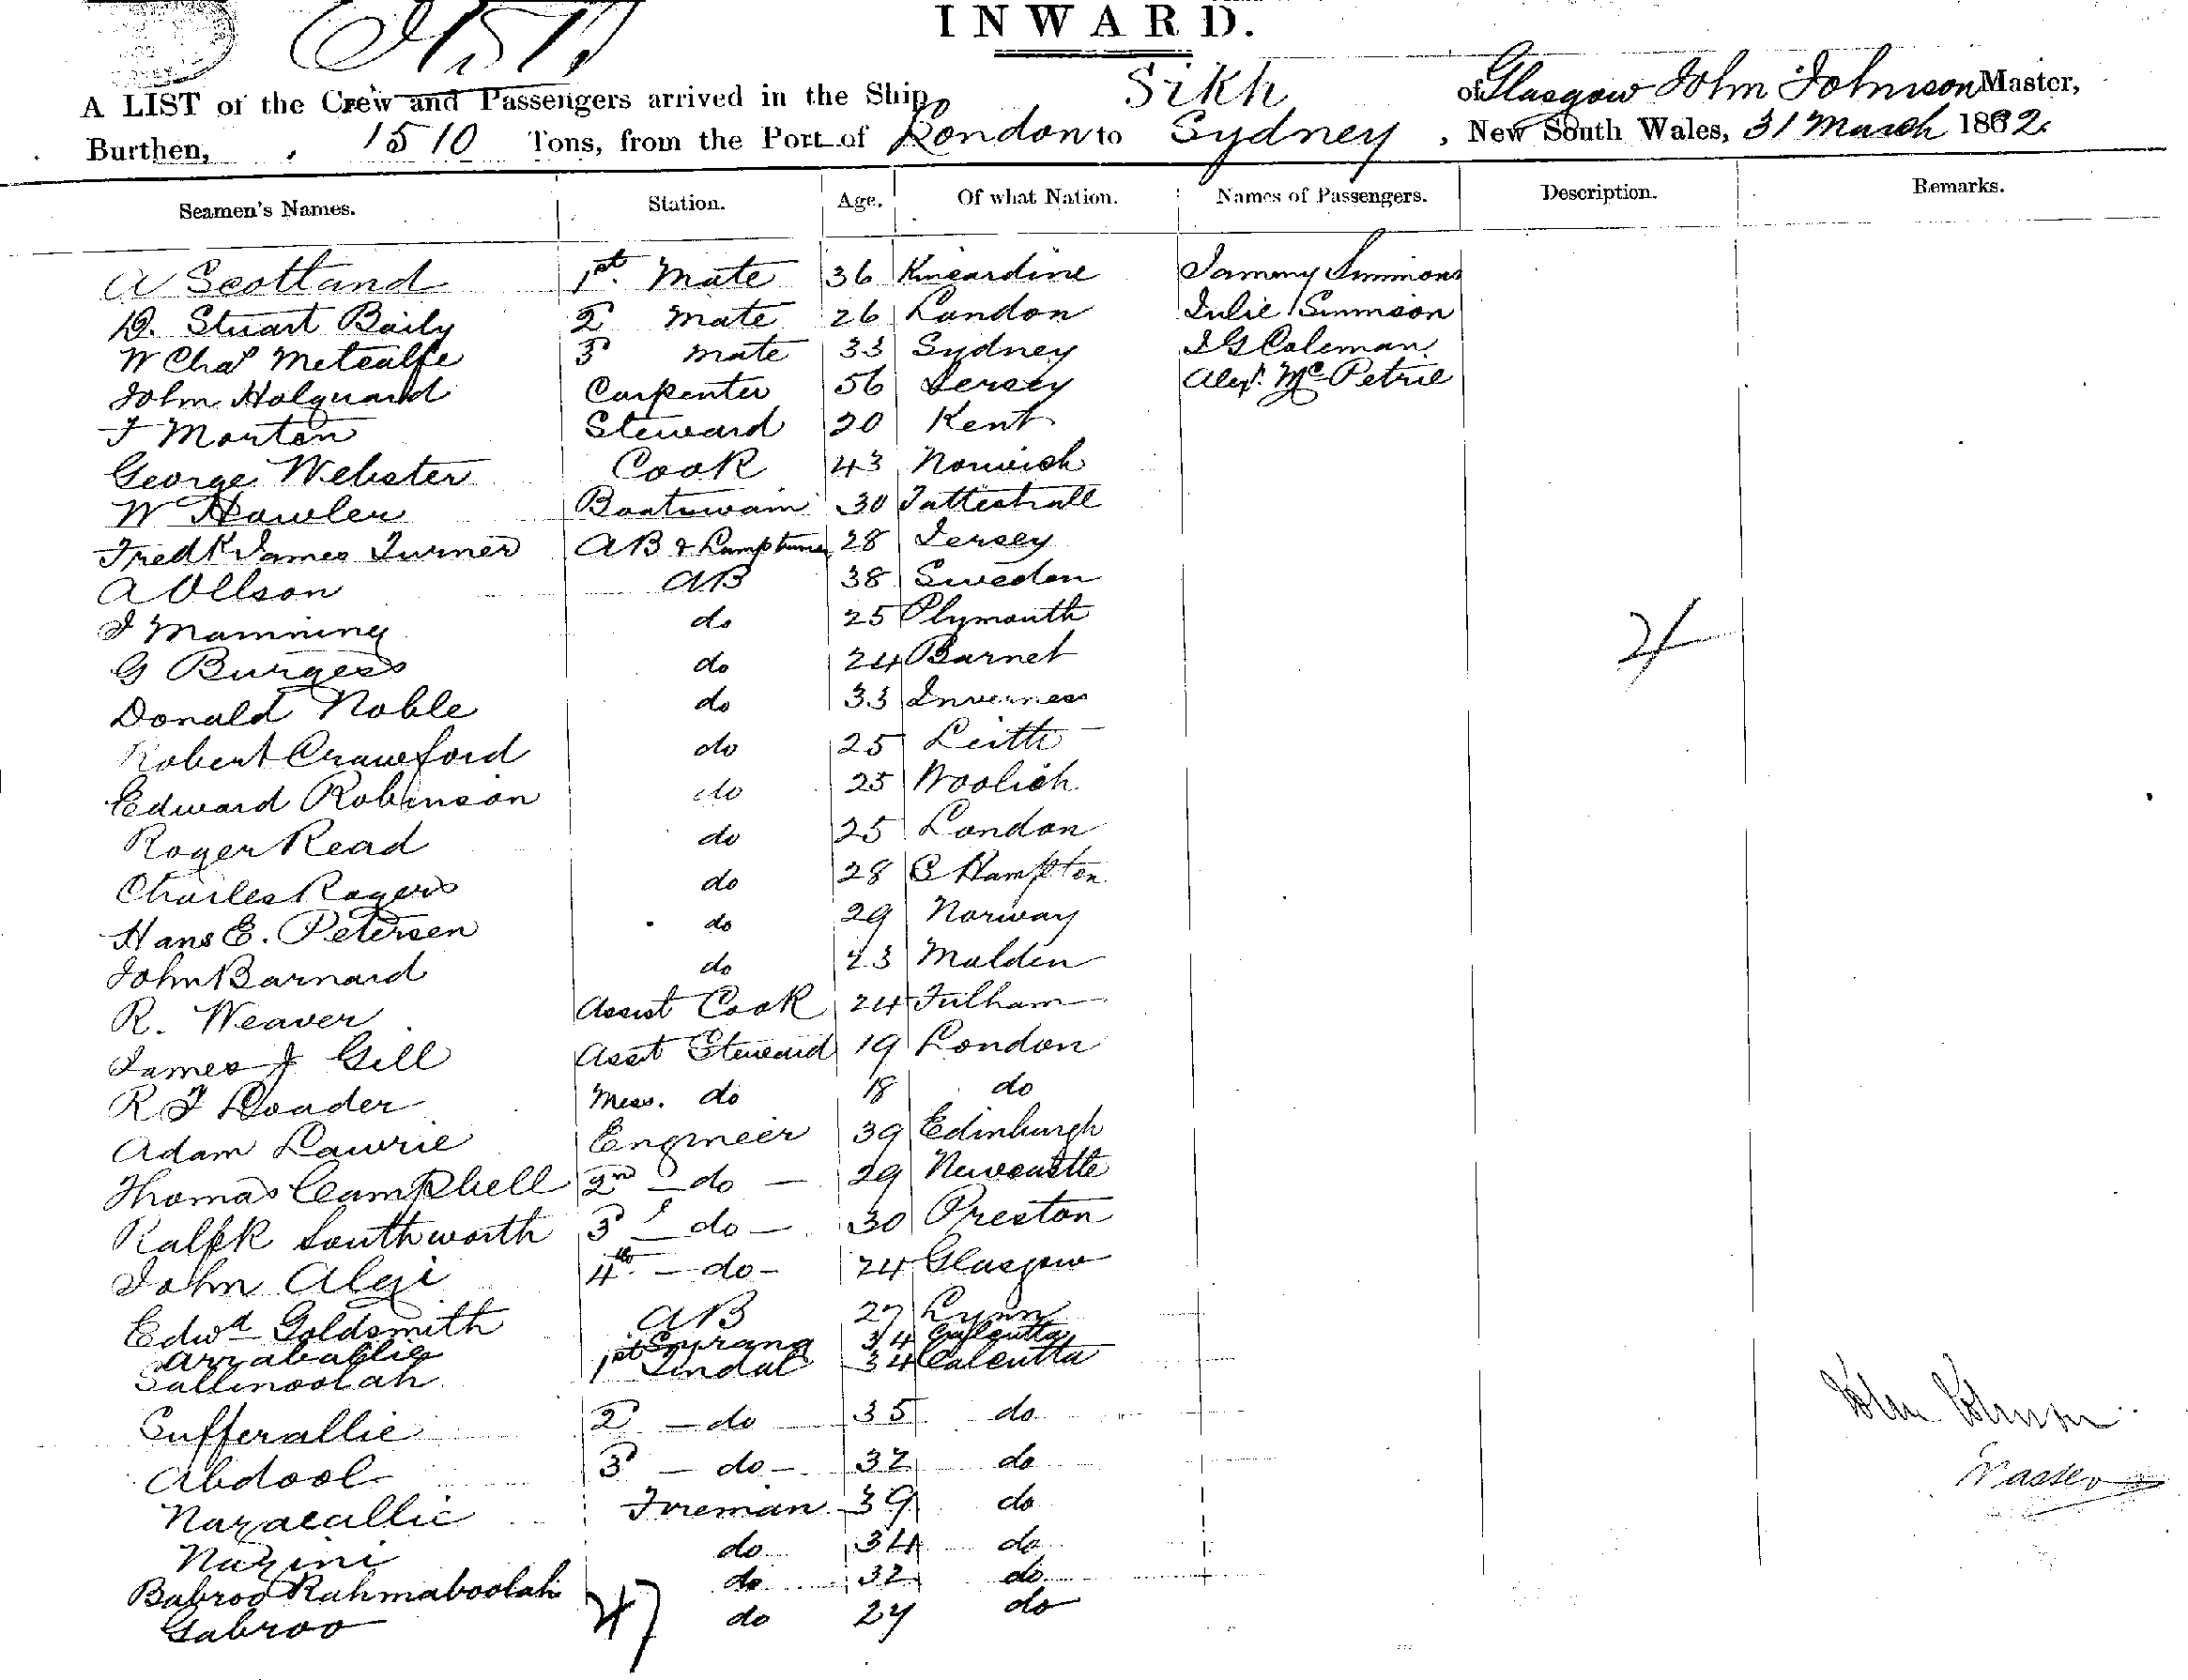 INWARD.
A LIST of the Crew and Passengers arrived in the Ship Sikh of Glasgow John Johnson Master,
Burthen, 1510 Tons, from the Port of London to Sydney, New South Wales, 31 March 1882.
Seamen's Names. Station. Age. Of what Nation. Names of Passengers. Description. Remarks.
A Scotland 1st. Mate 36 Kincardine Sammy Simmons
D. Stuart Baily 2d Mate 26 London Julie Simmson
W Chas Metcalfe 3d Mate 33 Sydney J G Coleman
John Holquard Carpenter 56 Jersey Alexr. Mc Petrie
F Morton Steward 20 Kent
George Webster Cook 43 Norwich
W Hawler Boatswain 30 Tattershall
Fredk James Turner AB & Lamptrimer 28 Jersey
A Ollson AB 38 Sweden
J Mamning do 25 Plymouth
G Burgess do 24 Barnet
Donald Noble do 33 Inverness
Robert Crawford do 25 Leith
Edward Robinson do 25 Woolich
Roger Read do 25 London
Charles Rogers do 28 S Hampton
Hans E. Petersen do 29 Norway
John Barnard do 23 Malden
R. Weaver Assist Cook 24 Fulham
James J Gill Asst Steward 19 London
R J Doader Mess. do 18 do
Adam Lawrie Engineer 39 Edinburgh
Thomas Campbell 2nd - do - 29 Newcastle
Ralph Southworth 3d - do - 30 Preston
John Algi 4th - do - 24 Glasgow
Edwd Goldsmith AB 27 Lynn
Arraballie Serang 34 Calcutta
Sallimoolah 1st Tindal 34 Calcutta
Sufferallie 2d - do 35 do
Abdool 3d - do - 32 do
Nazacallie Fireman 39 do
Nazini do 34 do
Babroo Rahmaboolah do 32 do
Gabroo 47 do 27 do
4
John Johnson
Master